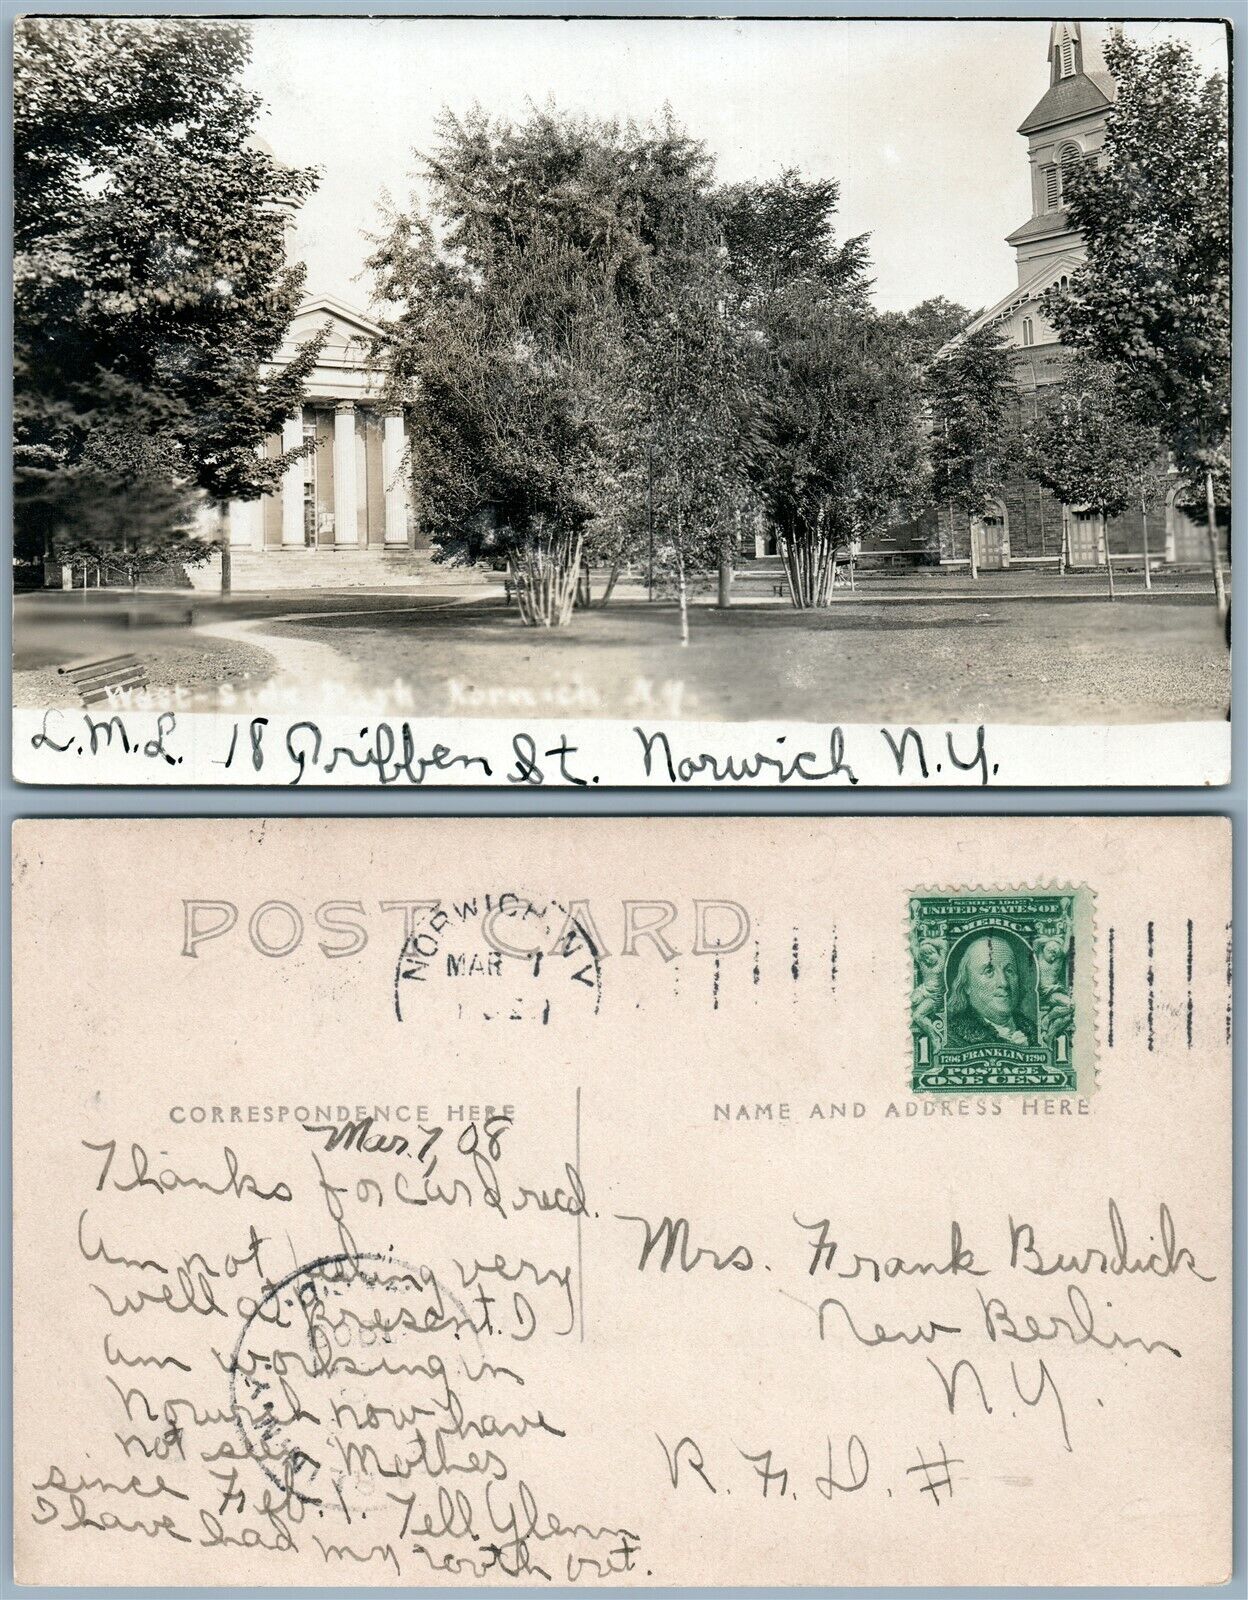 West Side Park Norwich N.Y.
L.M.L. 18 Griffen St. Norwich N.Y.
POST CARD
NORWICH, N.Y.
MAR 7
SERIES 1902
UNITED STATES OF
AMERICA
1 1
1706 FRANKLIN 1790
POSTAGE
ONE CENT
CORRESPONDENCE HERE
NAME AND ADDRESS HERE
Mar. 7, 08
Thanks for card recd.
Am not feeling very
well at present. I
am working in
Norwich now have
not seen Mother
since Feb. 1. Tell Glenn
I have had my tooth out.
Mrs. Frank Burdick
New Berlin
N.Y.
R.F.D. #